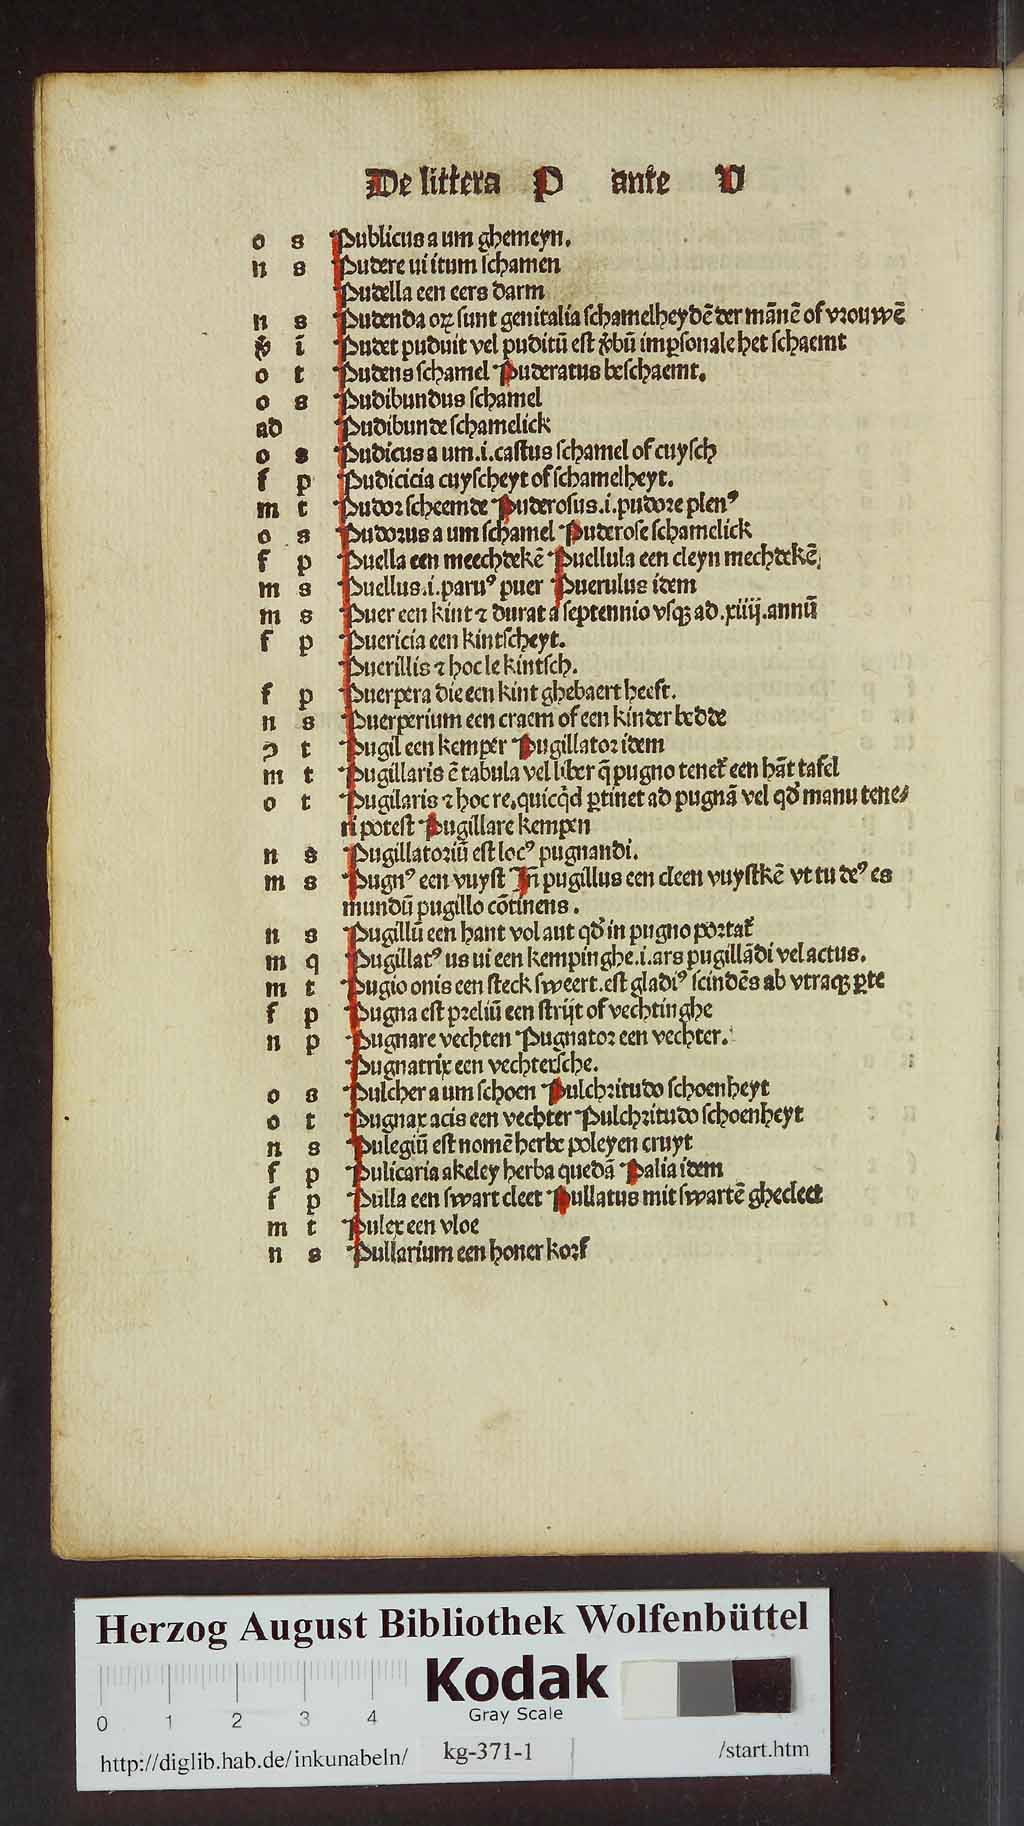 De littera P ante V
o s Publicus a um ghemeyn.
n s Pudere ui itum schamen
Pudella een eers darm
n s Pudenda oꝝ sunt genitalia schamelheydē der mānē of vrouwē
v̄ ī Pudet puduit vel puditū est v̄bū imꝑsonale het schaemt
o t Pudens schamel Puderatus beschaemt.
o s Pudibundus schamel
ad Pudibunde schamelick
o s Pudicus a um .i. castus schamel of cuysch
f p Pudicicia cuyscheyt of schamelheyt.
m t Pudoꝛ scheemde Puderosus .i. pudoꝛe plenꝰ
o s Pudoꝛus a um schamel Puderose schamelick
f p Puella een meechdekē Puellula een cleyn mechdekē
m s Puellus .i. paruꝰ puer Puerulus idem
m s Puer een kint ⁊ durat a septennio vsqꝫ ad .xiiij. annū
f p Puericia een kintscheyt.
Puerillis ⁊ hoc le kintsch.
f p Puerpera die een kint ghebaert heeft.
n s Puerperium een craem of een kinder bedde
ꝯ t Pugil een kemper Pugillatoꝛ idem
m t Pugillaris ē tabula vel liber q̄ pugno tenet᷑ een hāt tafel
o t Pugilaris ⁊ hoc re. quicq̇d ꝑtinet ad pugnā vel qď manu tene⸗
ri potest Pugillare kempen
n s Pugillatoꝛiū est locꝰ pugnandi.
m s Pugnꝰ een vuyst Īn pugillus een cleen vuystkē vt tu deꝰ es
mundū pugillo cōtinens.
n s Pugillū een hant vol aut qď in pugno poꝛtat᷑
m q Pugillatꝰ us ui een kempinghe .i. ars pugillādi vel actus.
m t Pugio onis een steck sweert. est gladiꝰ scindēs ab vtraqꝫ ꝑte
f p Pugna est pꝛeliū een strijt of vechtinghe
n p Pugnare vechten Pugnatoꝛ een vechter.
Pugnatrix een vechtersche.
o s Pulcher a um schoen Pulchꝛitudo schoenheyt
o t Pugnax acis een vechter Pulchꝛitudo schoenheyt
n s Pulegiū est nomē herbe poleyen cruyt
f p Pulicaria akeley herba quedā Palia idem
f p Pulla een swart cleet Pullatus mit swartē ghecleet
m t Pulex een vloe
n s Pullarium een honer koꝛf
Herzog August Bibliothek Wolfenbüttel
Kodak
Gray Scale
0 1 2 3 4
http://diglib.hab.de/inkunabeln/ kg-371-1 /start.htm